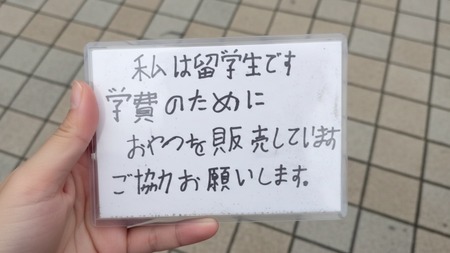 私は留学生です
学費のために
おやつを販売しています
ご協力お願いします。